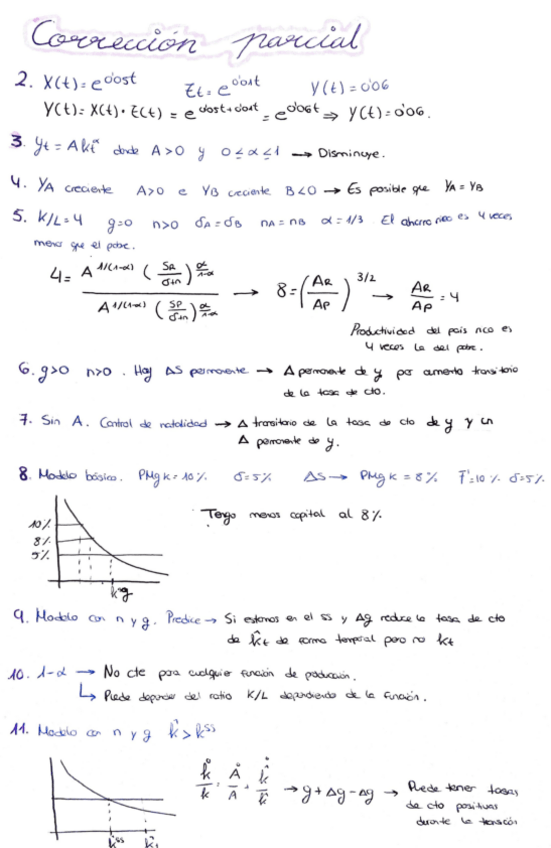 Corrección parcial
2. X(t) = e^0'05t Zt = e^0'01t Y(t) = 0'06
Y(t) = X(t) · Z(t) = e^0'05t+0'01t = e^0'06t ⇒ Y(t) = 0'06.
3. yt = Akt^α donde A>0 y 0≤α≤1 → Disminuye.
4. YA creciente A>0 e YB creciente B<0 → Es posible que YA = YB
5. K/L=4 g=0 n>0 δA=δB nA=nB α=1/3 El ahorro rico es 4 veces
menor que el pobre.
4 = A^1/(1-α) (SR/δ+n)^α/1-α / A^1/(1-α) (SP/δ+n)^α/1-α → 8 = (AR/AP)^3/2 → AR/AP = 4
Productividad del país rico es
4 veces la del pobre.
6. g>0 n>0. Hay ΔS permanente → Δ permanente de y por aumento transitorio
de la tasa de cto.
7. Sin A. Control de natalidad → Δ transitorio de la tasa de cto de y y un
Δ permanente de y.
8. Modelo básico. PMgK = 10% δ=5% ΔS → PMgK = 8% r=10% δ=5%
Tengo menos capital al 8%
10%
8%
5%
k*g
9. Modelo con n y g. Predice → Si estamos en el ss y Δg reduce la tasa de cto
de k̂t de forma temporal pero no kt
10. 1-α → No cte para cualquier función de producción.
↳ Puede depender del ratio K/L dependiendo de la función.
11. Modelo con n y g k̂ > k^ss
→ g + Δg - Δg → Puede tener tasas
de cto positivas
durante la transición
k̂^ss k̂1